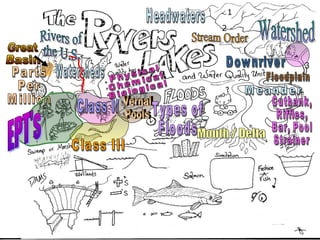 The Rivers and Lakes
and Water Quality Unit
Headwaters
1
2
Stream Order
Watershed
Rivers of
the U.S.
Great
Basin
Parts
Per
Million
Watersheds
Water
Physical
Chemical
Biological
Downriver
Floodplain
Meander
FLOODS
Class I
Vernal
Pools
Types of
Floods
Cutbank,
Riffles,
Bar, Pool
Strainer
EPT's
Class III
Mouth / Delta
Swamp or Marsh
Wetlands
DAMS
+'s
-'s
Salmon
Fish